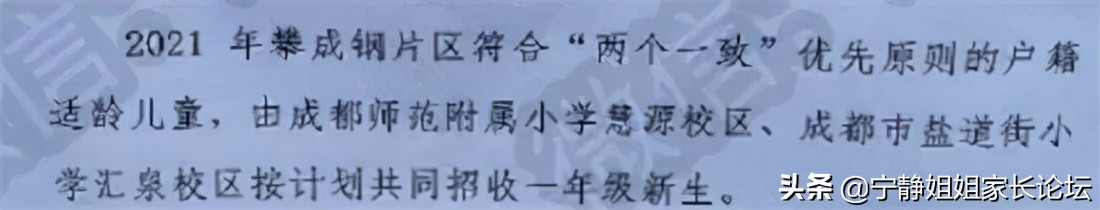 2021 年攀成钢片区符合“两个一致”优先原则的户籍
适龄儿童，由成都师范附属小学慧源校区、成都市盐道街小
学汇泉校区按计划共同招收一年级新生。
头条@宁静姐姐家长论坛